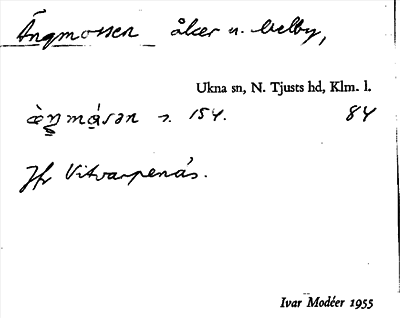 Ängmossen åker u. Welby,
Ukna sn, N. Tjusts hd, Klm. l.
s. 154. 84
Jfr Vitvarpenäs.
Ivar Modéer 1955